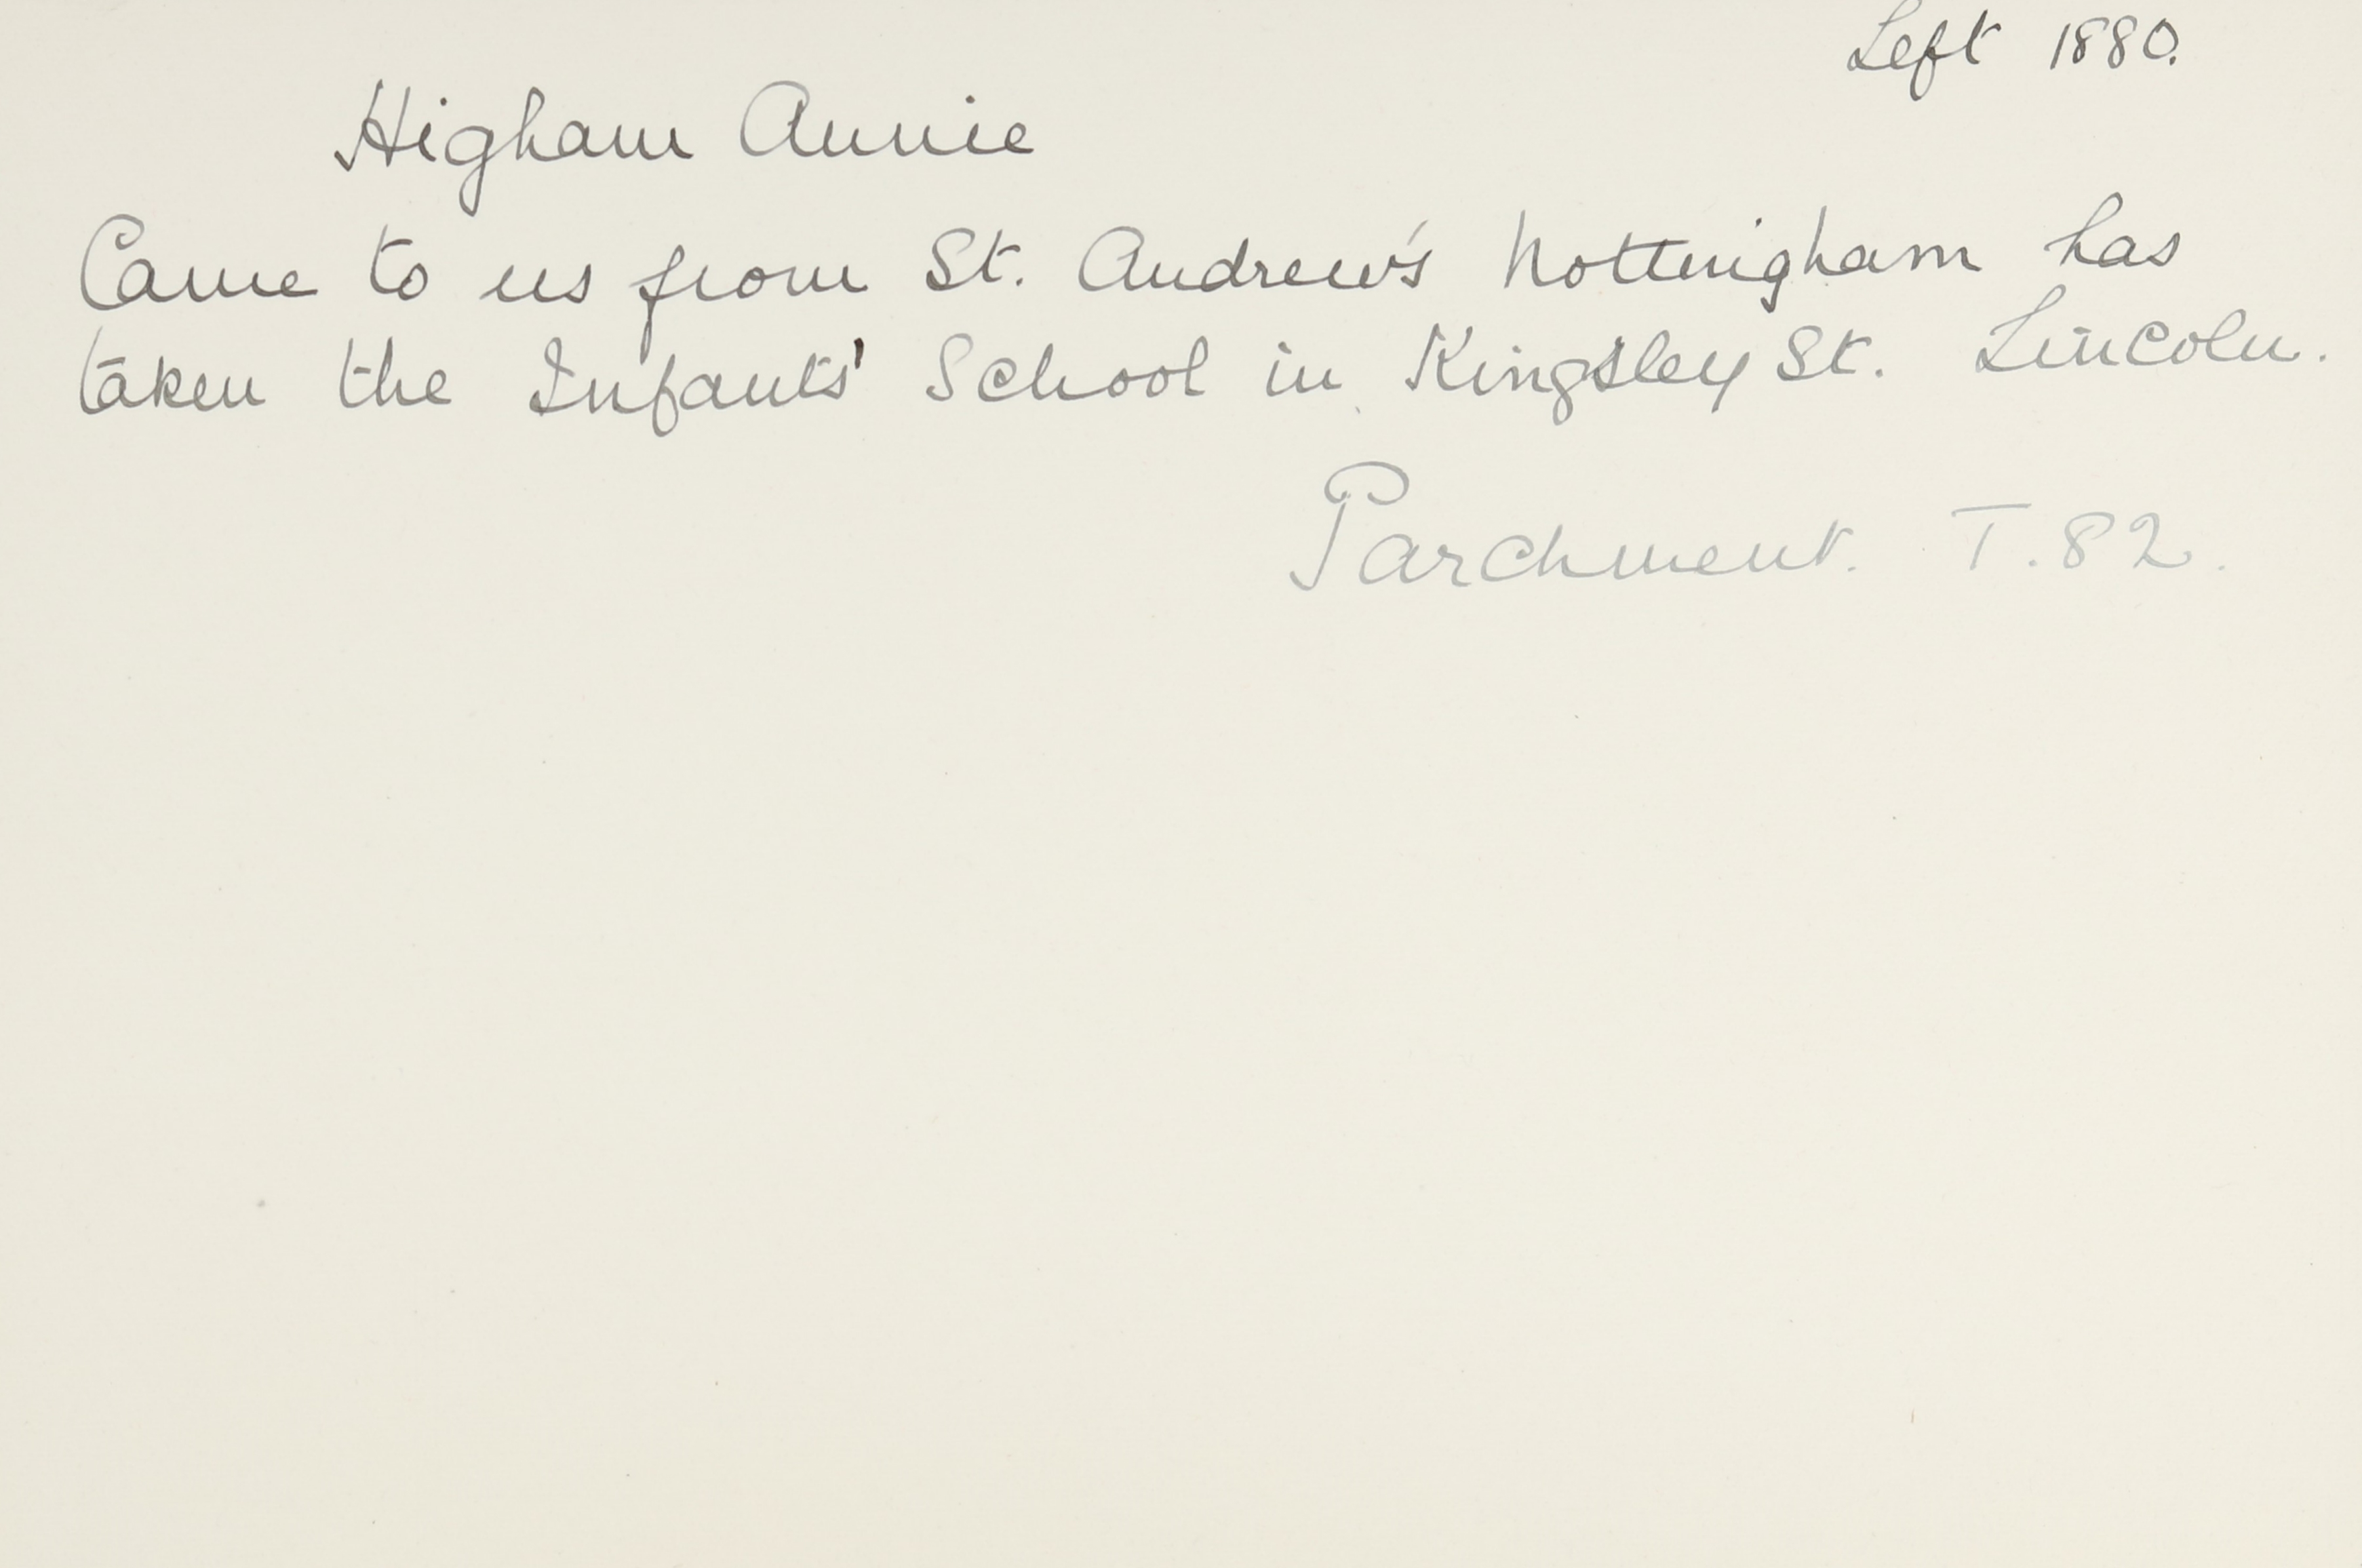 Left 1880.
Higham Annie
Came to us from St. Andrew's Nottingham has
taken the Infants' School in Kingsley St. Lincoln.
Parchment. T.82.